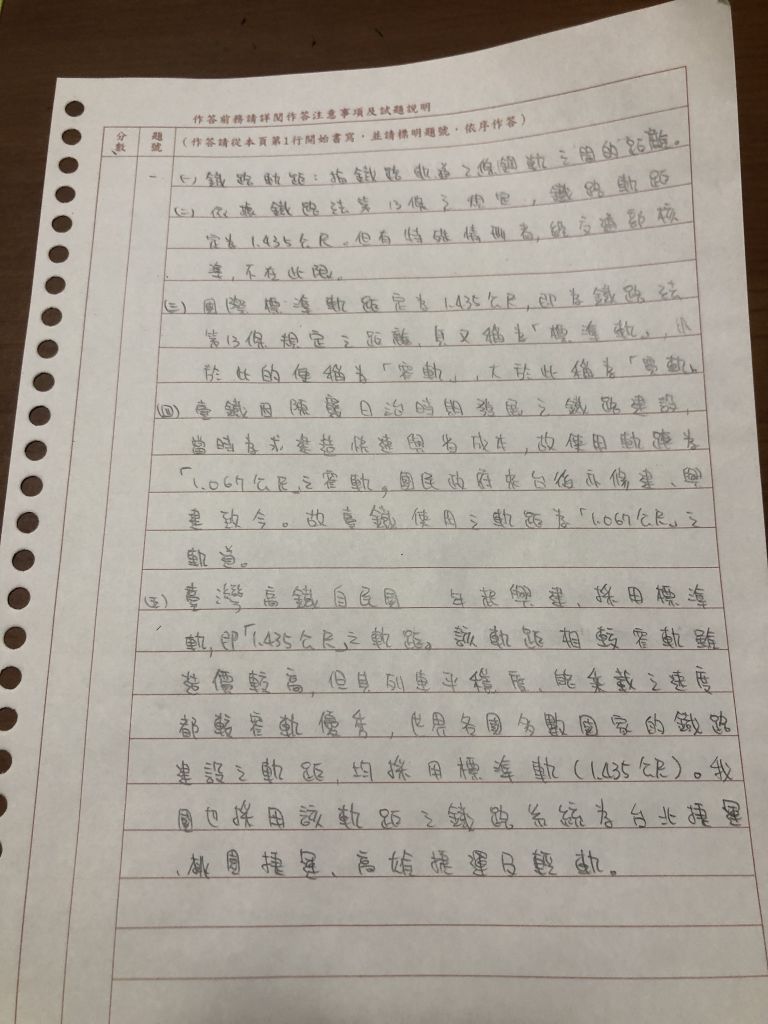 作答前務請詳閱作答注意事項及試題說明
分數 題號 (作答請從本頁第1行開始書寫,並請標明題號,依序作答)
一 (一) 鐵路軌距:指鐵路軌道之條鋼軌之間的距離。
(二) 依據鐵路法第13條之規定,鐵路軌距
定為1.435公尺。但有特殊情形者,經交通部核
準,不在此限。
(三) 國際標準軌距定為1.435公尺,即為鐵路法
第13條規定之距離,其又稱為「標準軌」,小
於此的便稱為「窄軌」,大於此稱為「寬軌」。
(四) 臺鐵因陳舊日治時期發展之鐵路建設,
當時為求建造快速與省成本,故使用軌距為
「1.067公尺」之窄軌。國民政府來台後亦修建、興
建致今。故臺鐵使用之軌距為「1.067公尺」之
軌道。
(五) 臺灣高鐵自民國 年起興建,採用標準
軌,即「1.435公尺」之軌距。該軌距相較窄軌雖
造價較高,但其列車平穩度、能乘載之速度
都較窄軌優秀,世界各國多數國家的鐵路
建設之軌距,均採用標準軌(1.435公尺)。我
國也採用該軌距之鐵路系統為台北捷運
、桃園捷運、高雄捷運及輕軌。